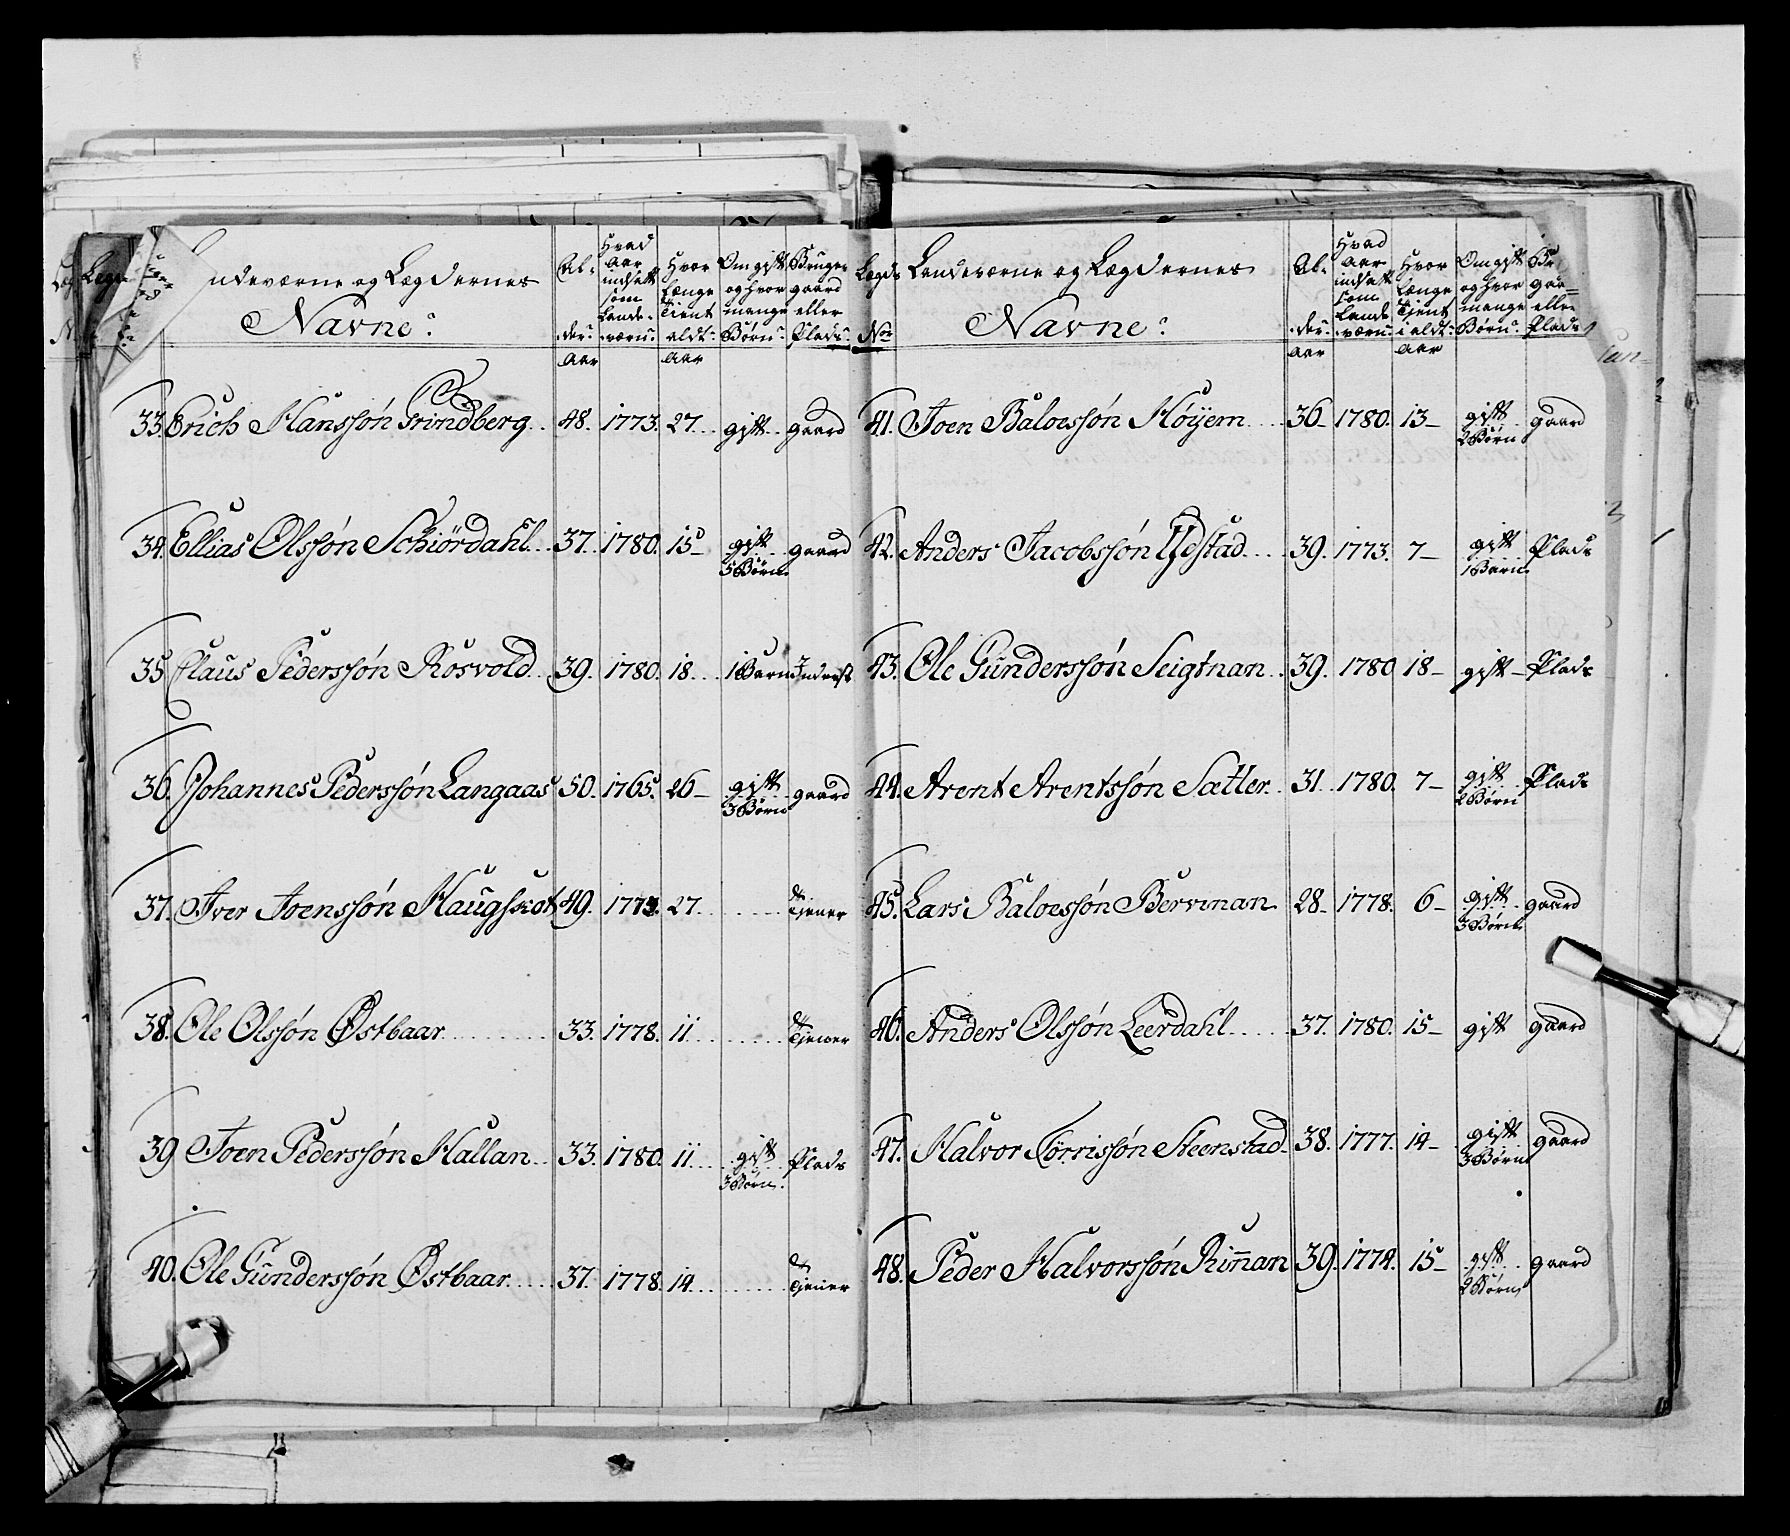 Landeværns og Lægdernes
Navne:
Al-
der:
Aar
Hvad
Aar
indsatt
som
Lande-
værn:
Hvor
Længe
Tient
i aldt:
Aar
Om gift
og hvor
mange
Børn:
Bruger
gaard
eller
Plads:
33. Erich Hanssøn Grindberg .. 48. 1773. 27 .. gift .. gaard
34. Ellias Olssøn Schiördahl .. 37. 1780. 15 gift .. gaard
5 Børn
35. Claus Pederssøn Rosvold .. 39. 1780. 18 .. 1 Barn Inderst
36. Johannes Pederssøn Langaas 50. 1765. 26 – gift .. gaard
3 Børn
37. Iver Joenssøn Haugskot 49. 1773. 27 .. Tjener
38. Ole Olssøn Østbaar .. 33. 1778. 11 .. Tjener
39 Joen Pederssøn Hallan .. 33. 1780. 11 .. gift .. Plads
3 Børn
40. Ole Gunderssøn Østbaar .. 37. 1778. 14 .. Tjener
Lægds
No
Landeværne og Lægdernes
Navne:
Al-
der:
Aar
Hvad
Aar
indsatt
som
Lande
værn:
Hvor
Længe
Tient
i aldt:
Aar
Om gift
og hvor
mange
Børn:
Br
gaa-
eller
Plads
41. Joen Baloessøn Høijem .. 36 – 1780. 13 – gift .. gaard
2 Børn
42. Anders Jacobssøn Ydstad .. 39. 1773. 7 – gift .. Plads
1 Barn
43. Ole Gunderssøn Seigtnan .. 39. 1780 18 – gift – Plads
44. Arent Arentssøn Sætter .. 31. 1780. 7 – gift .. Plads
2 Børn
45. Lars Baloessøn Bervinan 28 – 1778. 6 – gift .. gaard
3 Børn
46. Anders Olssøn Leerdahl .. 37. 1780. 15 – gift gaard
47. Halvor Tørrissøn Steenstad .. 38. 1777. 14 – gift .. gaard
3 Børn
48. Peder Halvorssøn Rinnan 39. 1774. 15 – gift .. gaard
2 Børn